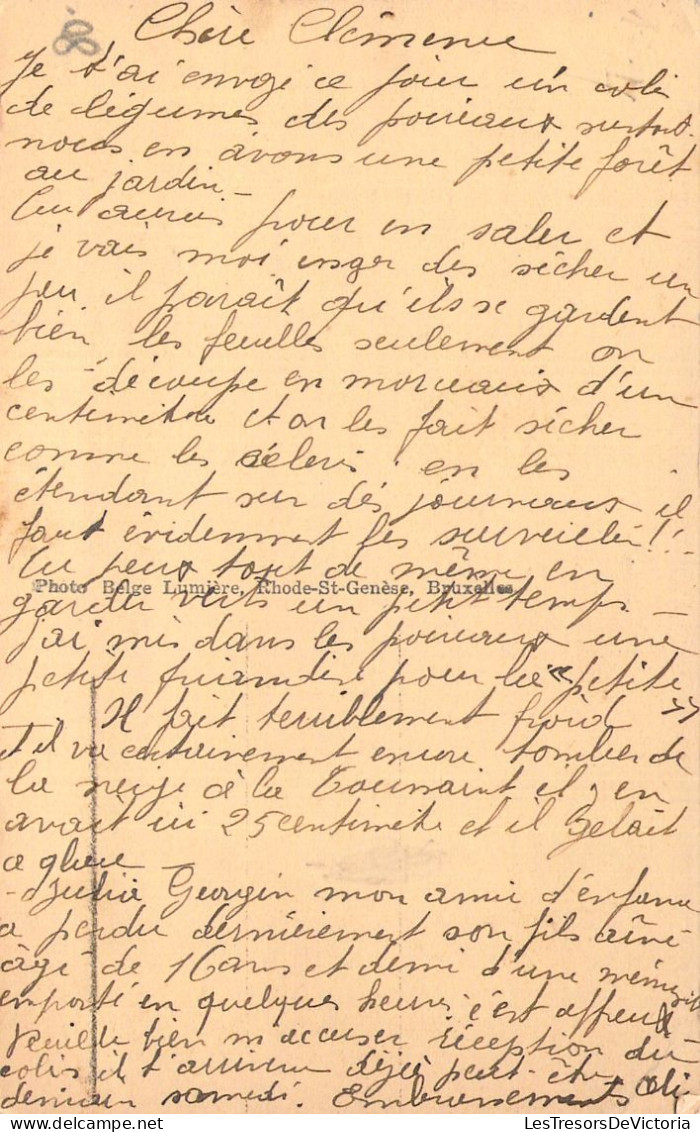 Chère Clémence
Je t'ai envoyé ce jour un colis
de légumes des poireaux surtout.
nous en avons une petite forêt
au jardin -
Tu auras pour en saler et
je vais moi des sécher un
peu il paraît qu'ils se gardent
bien les feuilles seulement on
les découpe en morceaux d'un
centimètre et on les fait sécher
comme les céleris en les
étendant sur des journaux il
faut évidemment les surveiller!!
Tu peux tout de même en
Photo Belge Lumière, Rhode-St-Genèse, Bruxelles
garder verts un petit temps -
j'ai mis dans les poireaux une
petite friandise pour la « petite »
Il fait terriblement froid
et il va certainement encore tomber de
la neige à la Toussaint il y en
avait ici 25 centimètre et il gelait
a glace
- Julia Georgin mon amie d'enfance
a perdu dernièrement son fils aîné
âgé de 16 ans et demi d'une méningite
emporté en quelques heures c'est affreux
Veuille bien m'accuser réception du
colis il t'arrivera déjà peut-être
demain samedi. Embrassements
www.LesTresorsDeVictoria.com